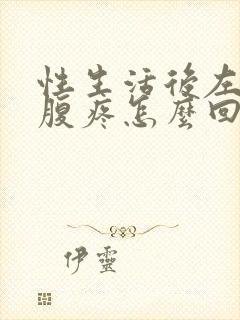 性生活後左
腹疼怎麼回
伊靈